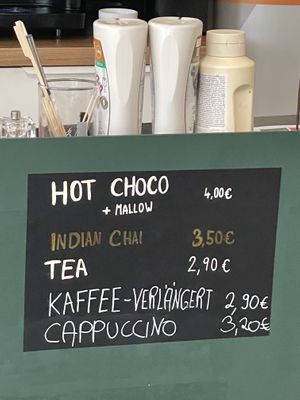 HOT CHOCO 4,00€
+ MALLOW
INDIAN CHAI 3,50€
TEA 2,90€
KAFFEE-VERLÄNGERT 2,90€
CAPPUCCINO 3,20€